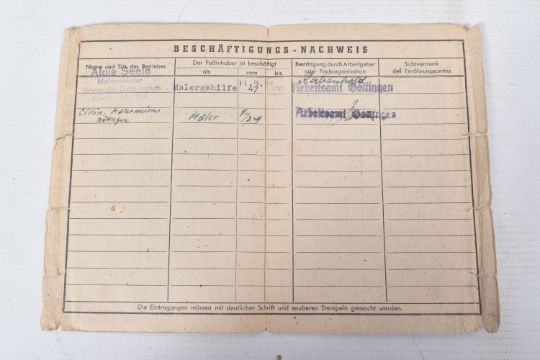 BESCHÄFTIGUNGS-NACHWEIS
Name und Sitz des Betriebes
Der Paßinhaber ist beschäftigt
als vom bis
Bestätigung durch Arbeitgeber
oder Fachorganisation
Sichtvermerk
des Ernährungsamtes
Alois Seele
Malermeister
Malergehilfe 11.9. 47
Arbeitsamt Göttingen
Malermeister
Göttingen
Maler
Arbeitsamt Göttingen
Die Eintragungen müssen mit deutlicher Schrift und sauberen Stempeln gemacht werden.